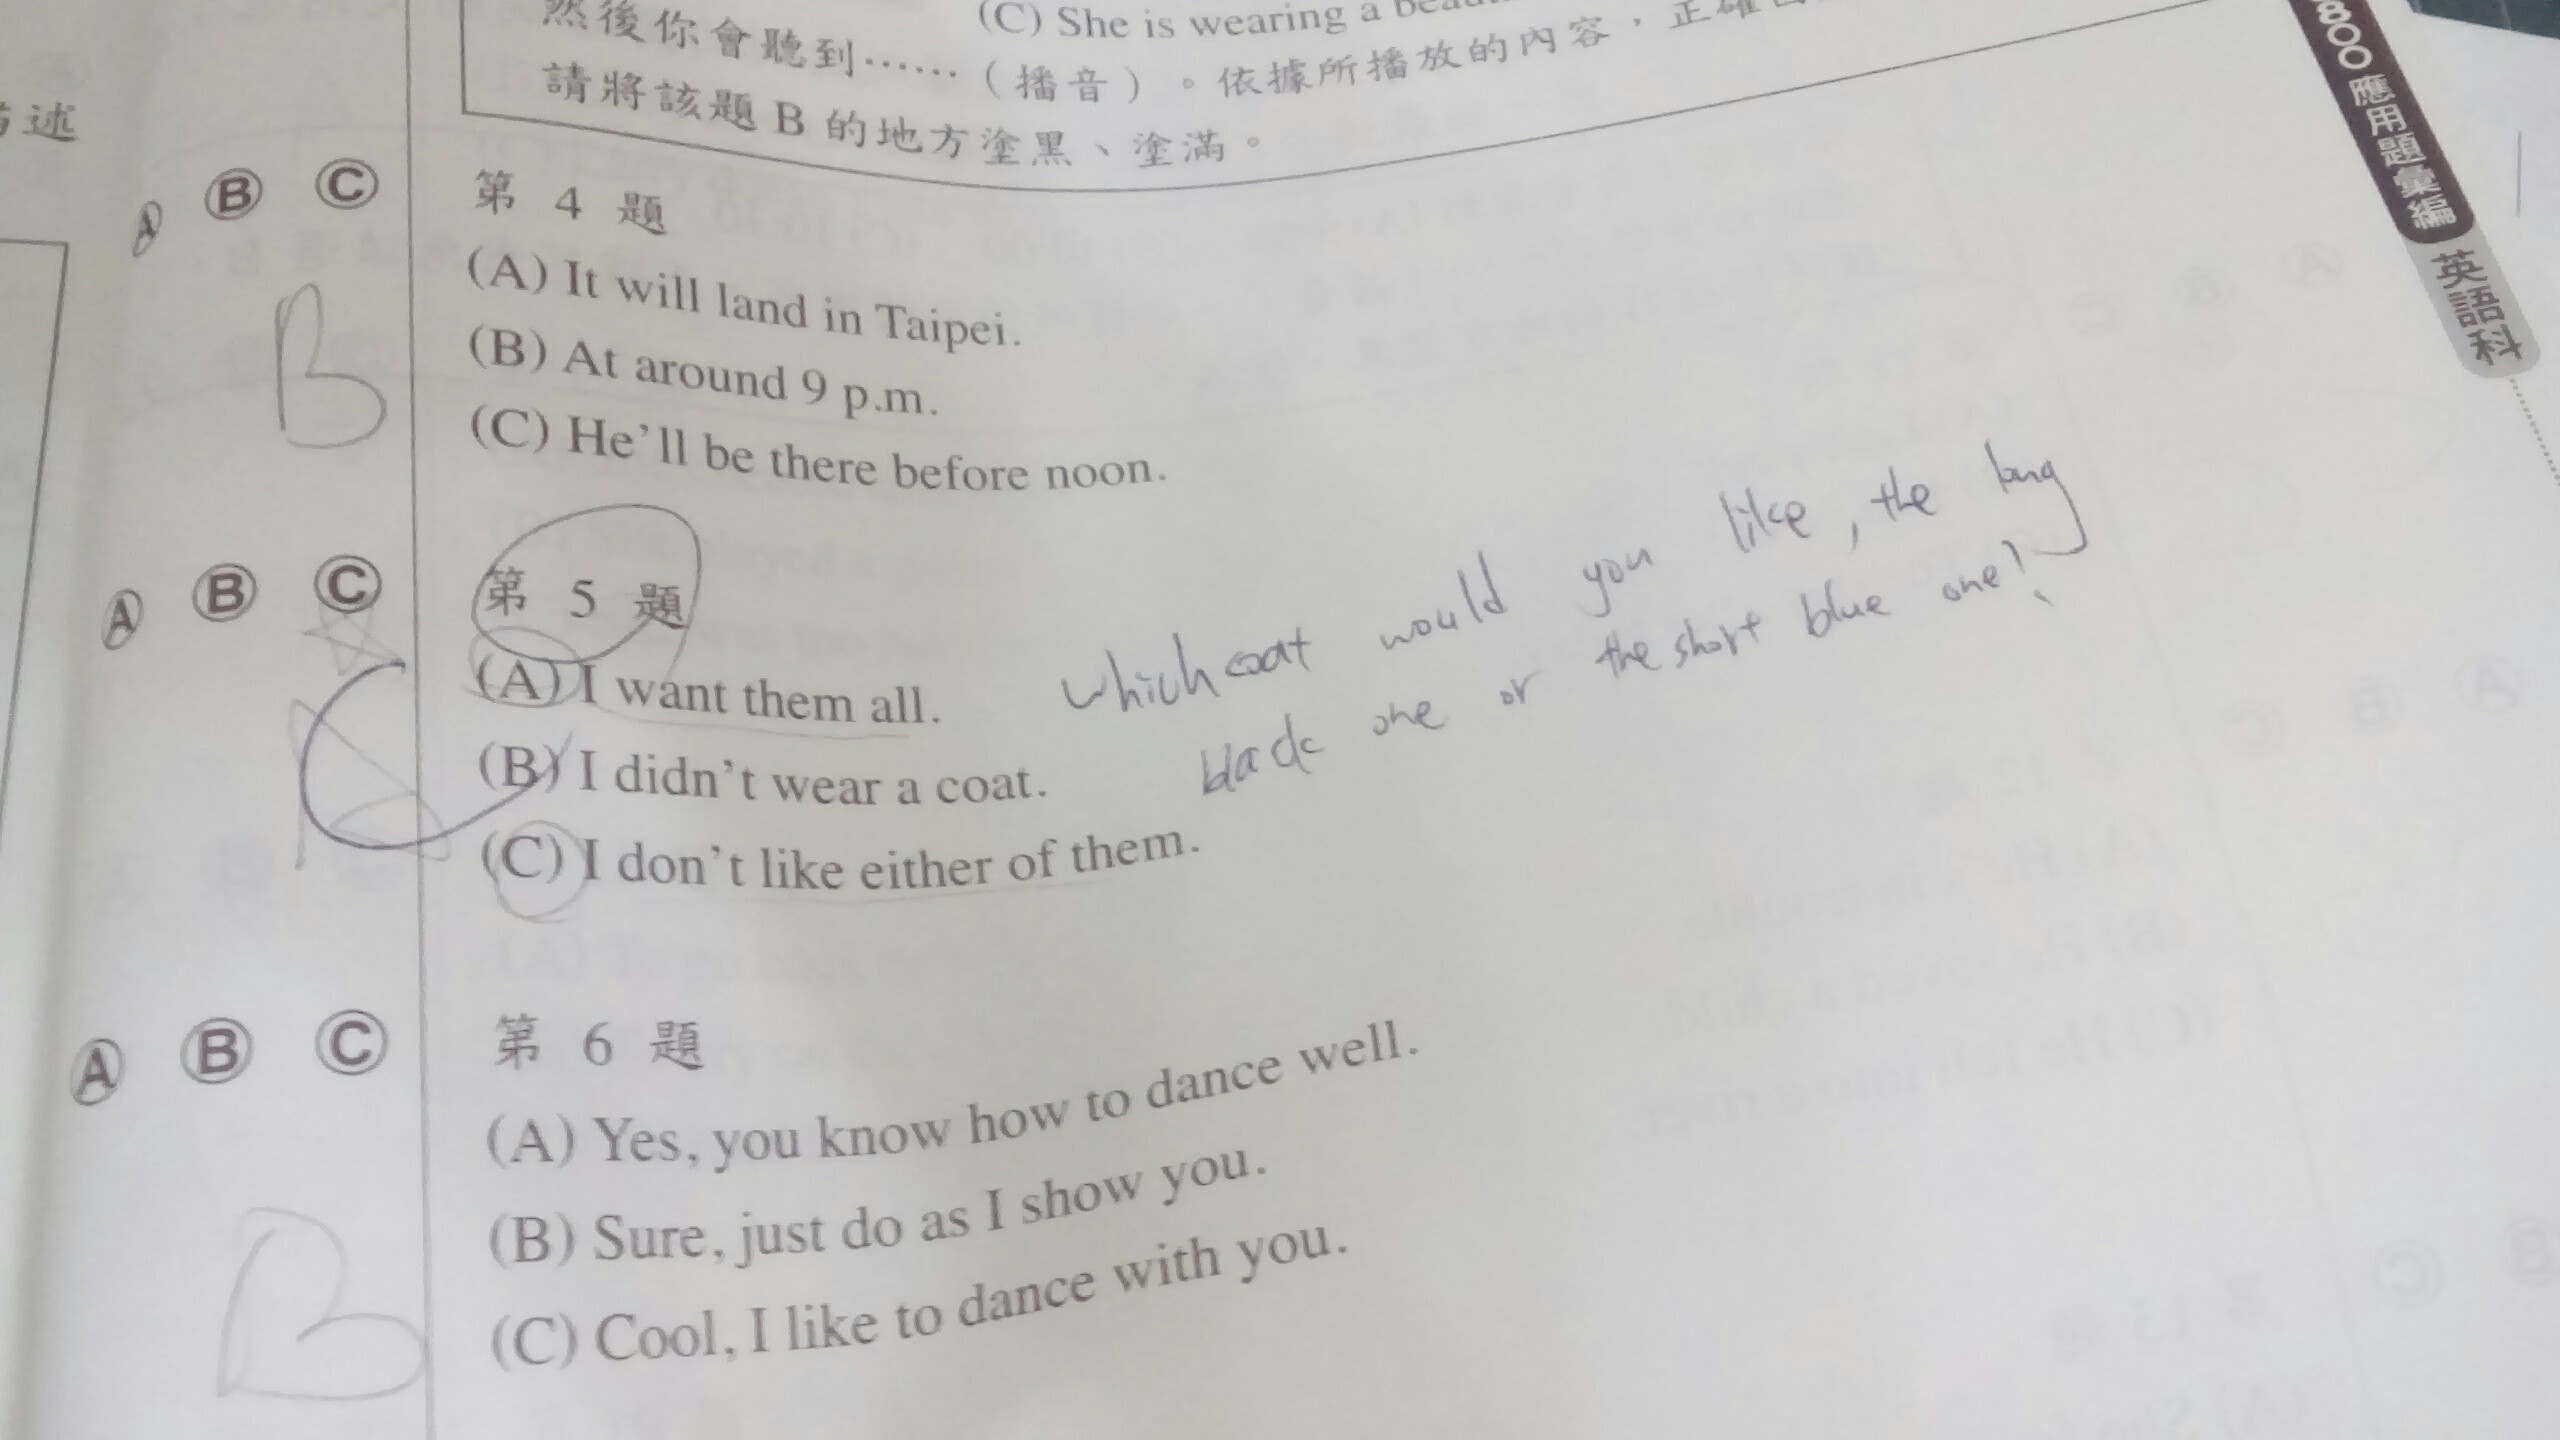 (C) She is wearing a
然後你會聽到……（播音）。依據所播放的內容，正確
請將該題 B 的地方塗黑、塗滿。
述
800應用題彙編 英語科
A B C
第 4 題
(A) It will land in Taipei.
(B) At around 9 p.m.
(C) He'll be there before noon.
B
A B C
第 5 題
(A) I want them all.
(B) I didn't wear a coat.
(C) I don't like either of them.
C
which coat would you like, the long
black one or the short blue one?
A B C
第 6 題
(A) Yes, you know how to dance well.
(B) Sure, just do as I show you.
(C) Cool, I like to dance with you.
B